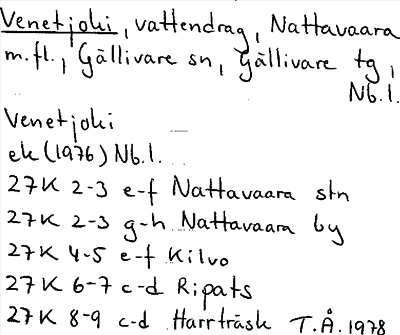 Venetjoki, vattendrag, Nattavaara
m.fl., Gällivare sn, Gällivare tg,
Nb.l.
Venetjoki
ek (1976) Nb.l.
27K 2-3 e-f Nattavaara stn
27K 2-3 g-h Nattavaara by
27K 4-5 e-f Kilvo
27K 6-7 c-d Ripats
27K 8-9 c-d Harrträsk T.Å. 1978